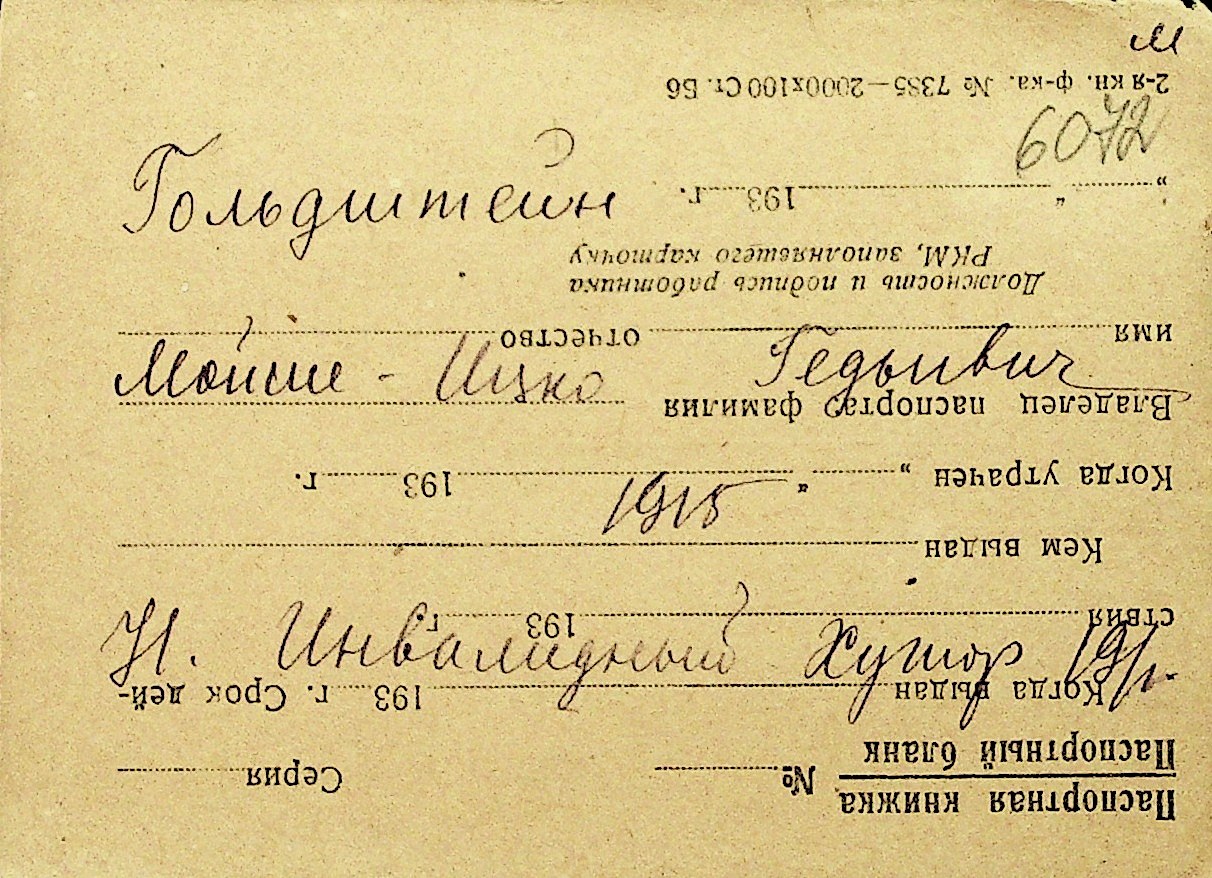 м
6072
Гольдштейн
Мойше - Ицко
1915
Н. Инвалидный Хутор
Паспортная книжка
Паспортный бланк
№ Серия
Когда выдан 193 г. Срок дей-
ствия 193 г.
Кем выдан
Когда утрачен „ “ 193 г.
Владелец паспорта: фамилия
имя отчество
Должность и подпись работника
РКМ, заполнявшего карточку
„ “ 193 г.
2-я кн. ф-ка. № 7385—2000х100 Ст. Б6